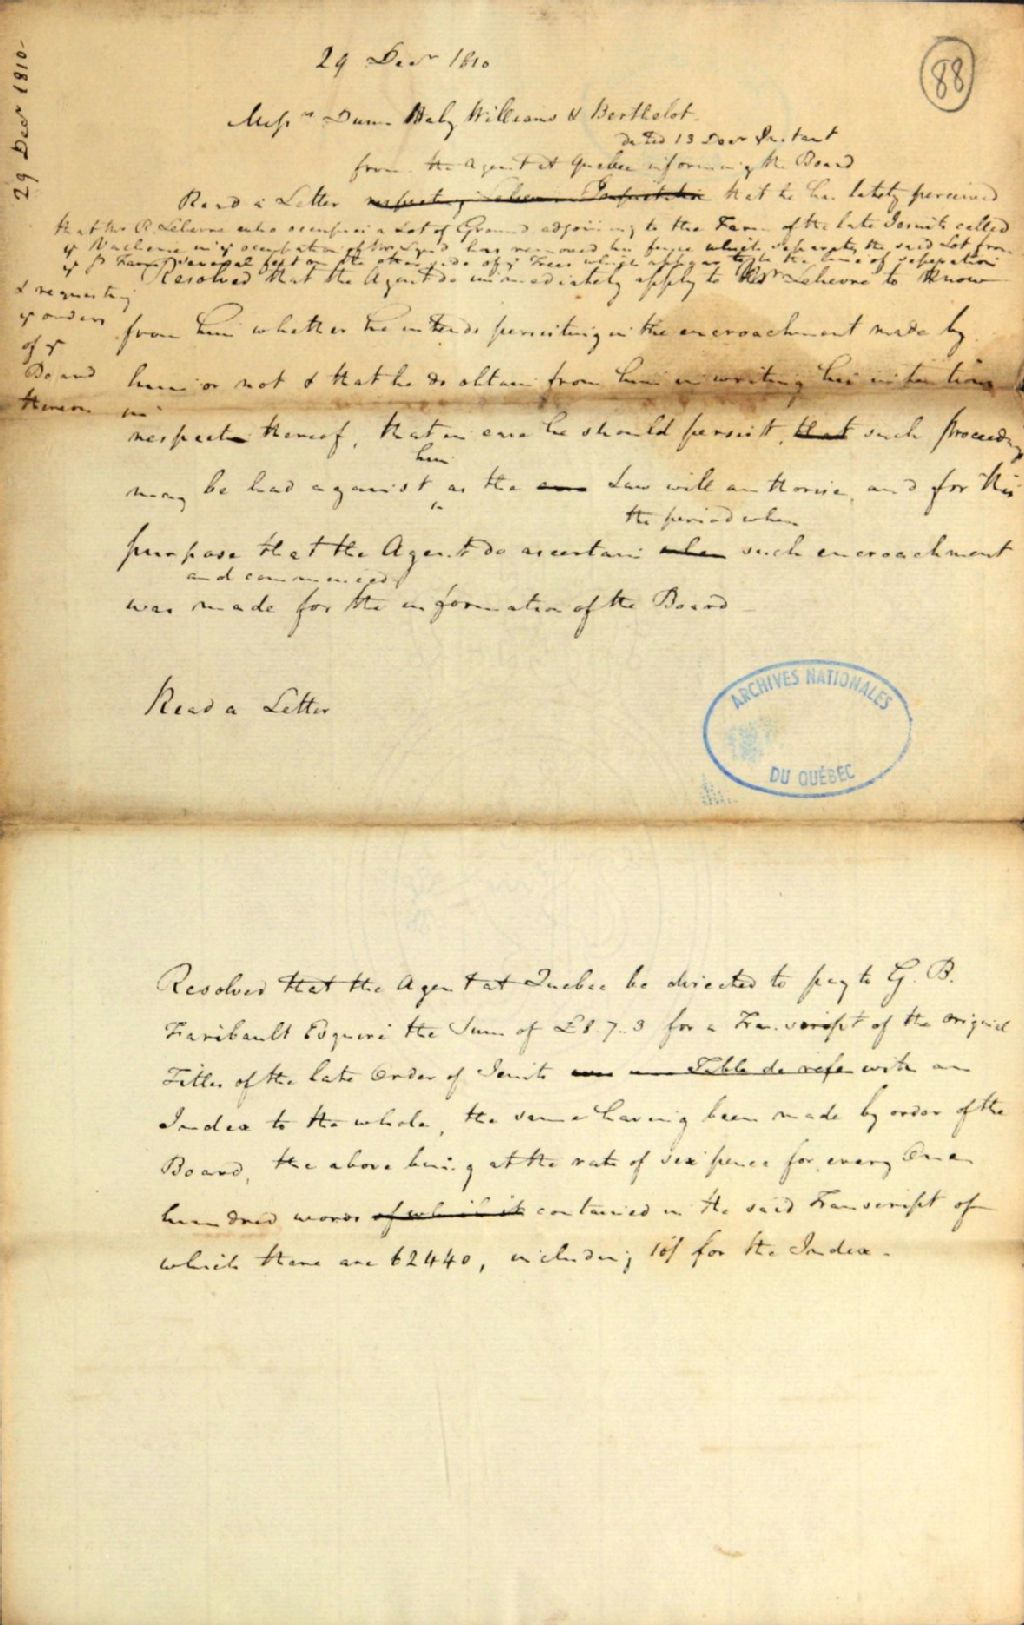 29 Decr 1810-
88
29 Decr 1810
Messrs Dunn Baby Williams & Berthelot
dated 13 Decr Instant
from the Agent at Quebec informing the Board
Read a Letter respecting Lelievre that he has lately perceived
that Mr R. Lelievre who occupies a Lot of Ground adjoining to the Farm of the late Jesuits called
ye Vacherie in ye occupation of Mr has removed his fence which separates the said Lot from
ye sd Farm several feet on the other side of ye Trees which appear to be the line of separation
& requesting
ye orders
of ye
Board
thereon
Resolved that the Agent do immediately apply to Mr Lelievre to know
from him whether he intends persisting in the encroachment made by
him or not & that he do obtain from him in writing his intentions
in
respect thereof, that in case he should persist, that such proceedings
him
may be had against as the Law will authorise, and for this
the period when
purpose that the Agent do ascertain when such encroachment
and commenced
was made for the information of the Board
Read a Letter
ARCHIVES NATIONALES
DU QUÉBEC
Resolved that the Agent at Quebec be directed to pay to G. B.
Faribault Esquire the Sum of £ 7. 3 for a Transcript of the original
Titles of the late Order of Jesuits Table de with an
Index to the whole, the same having been made by order of the
Board, the above being at the rate of six pence for every One
hundred words of which it contained in the said Transcript of
which there are 62440, including 10/ for the Index.